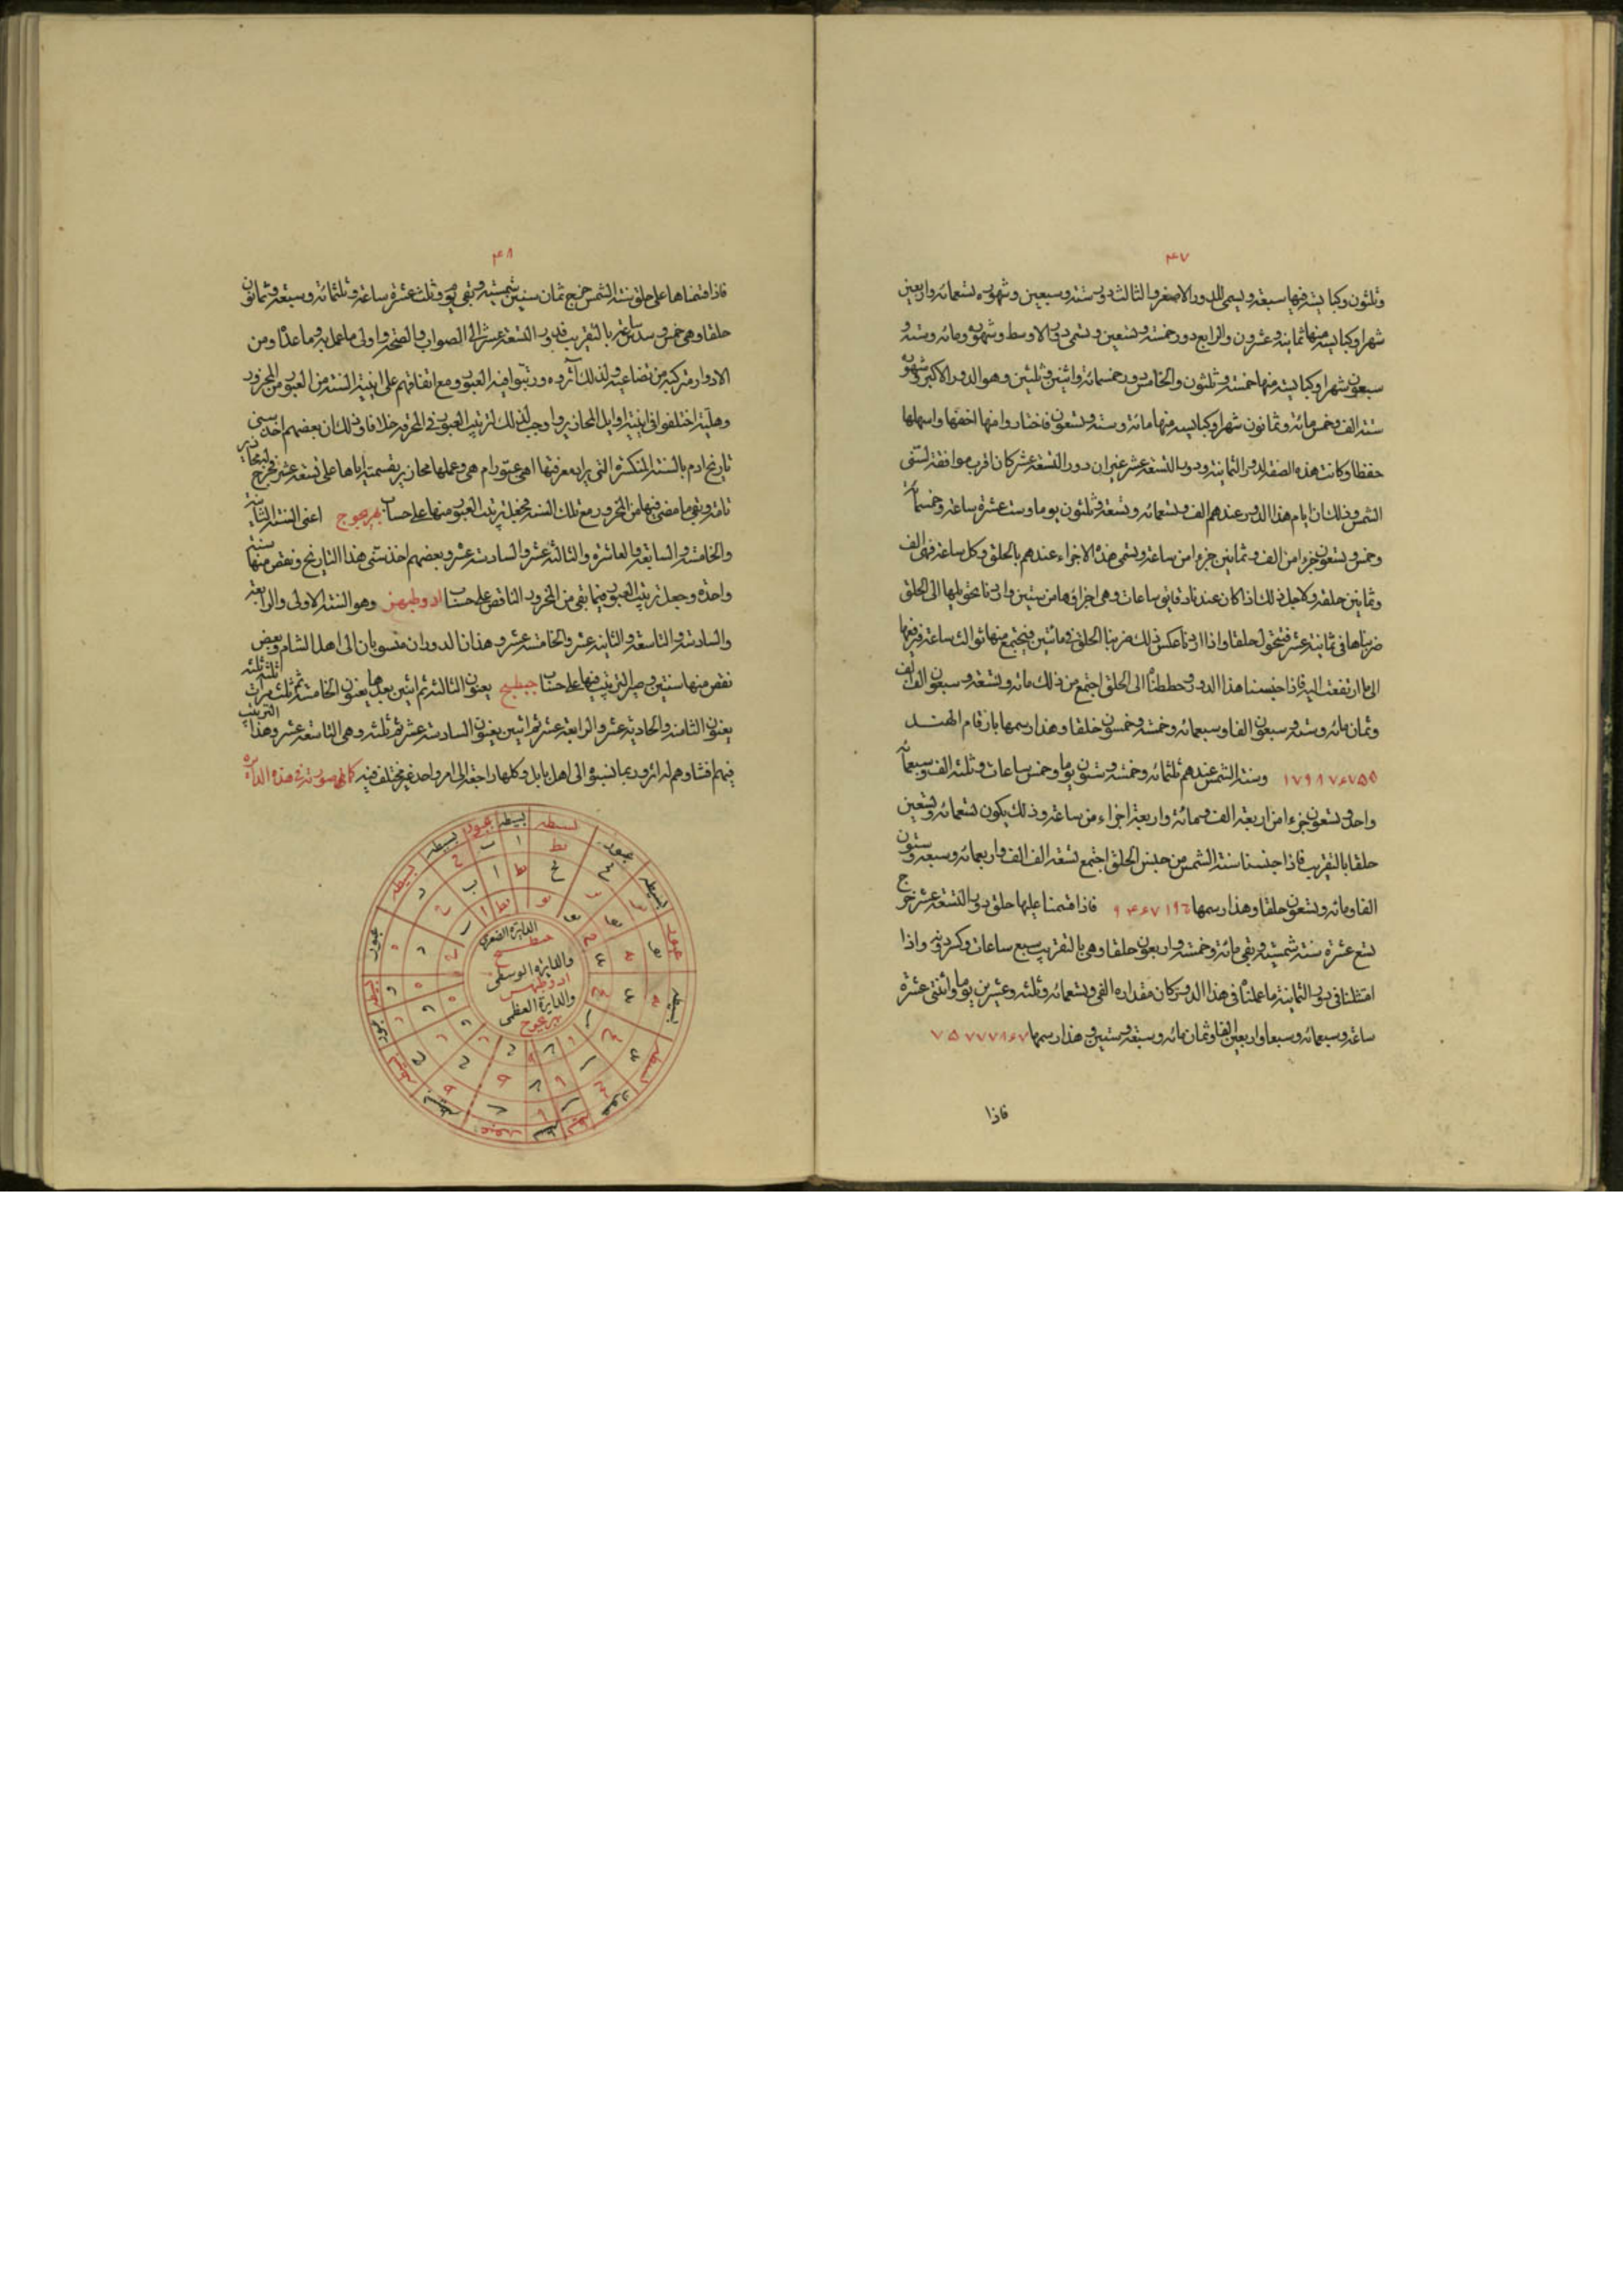 ٤٧
وثلثون وكبايسه فيها سبعة ويسمى الدور الاصغر والثالث دور ستة وسبعين وشهوره تسعمائة واربعين
شهرا وكبايسه منها ثمانية وعشرون والرابع دور خمسة وتسعين ويسمى دور الاوسط وشهوره ومائة وستة و
سبعون شهرا وكبايسه منها خمسة وثلثون والخامس دور خمسمائة واثنين وثلثين وهو الدور الاكبر وشهوره
ستة الف وخمس مائة وثمانون شهرا وكبايسه منها مائة وستة وتسعون فاختاروا منها اخفها واسهلها
حفظا وكانت هذه الصفة لدور الثمانية ودور التسعة عشر غير ان دور التسعة عشر كان اقرب موافقة لسنى
الشمس وذلك ان ايام هذا الدور عندهم الف وتسعمائة وتسعة وثلثون يوما وست عشرة ساعة وخمسمائة
وخمس وتسعون جزءا من الف وثمانين جزءا من ساعة ويسمى هذه الاجزاء عندهم بالحلق وكل ساعة فهى الف
وثمانين حلقة ولاجل ذلك اذا كان عندنا دقايق ساعات وهى اجزاؤها من ستين واردنا تحويلها الى الحلق
ضربناها فى ثمانية عشر فتتحول حلقا واذا اردنا عكس ذلك ضربنا الحلق فى مائتين فيجتمع منها ثوالث ساعة فنرفعها
الى ما ارتفعت اليه فاذا جنسنا هذا الدور وحططناه الى الحلق اجتمع من ذلك مائة وتسعة وسبعون الف الف
وثمان مائة وستة وسبعون الفا وسبعمائة وخمسة وخمسون حلقا وهذا رسمها بارقام الهند
١٧٩٨٧۶٧٥٥ وسنة الشمس عندهم ثلثمائة وخمسة وستون يوما وخمس ساعات وثلثة الف وسبعمائة
واحد وتسعون جزءا من اربعة الف ومائة واربعة اجزاء من ساعة وذلك يكون تسعمائة وتسعين
حلقا بالتقريب فاذا جنسنا سنة الشمس من جنس الحلق اجتمع تسعة الف الف واربعمائة وسبعة وستون
الفا ومائة وتسعون حلقا وهذا رسمها ٩۴۶٧١٩٠ فاذا قسمنا عليها حلق دور التسعة عشر خرج
تسع عشرة سنة شمسية وبقى مائة وخمسة واربعون حلقا وهى بالتقريب سبع ساعات وكسر دقى واذا
امتثلنا فى دور الثمانية ما عملناه فى هذا الدور كان مقداره الفى وتسعمائة وثلثة وعشرين يوما واثنتى عشرة
ساعة وسبعمائة وسبعا واربعين الفا وثمان مائة وسبعة وستين وهذا رسمها ٧٥٧٧٧٨۶٧
فاذا
٤٨
فاذا قسمناها على حلق سنة الشمس خرج ثمان سنين شمسية وبقى يوم وثلث عشرة ساعة وثلثمائة وسبعة وثمانون
حلقا وهى خمس وسدس ساعة بالتقريب فدور التسعة عشر الى الصواب والصحة واولى ما عمل به وما عداه من
الادوار مركبة من تضاعيفه ولذلك آثروه ورتبوا فيه العبور ومع اتفاقهم على ابنية السنة من العبور من المحزور
وهلية اختلفوا فى ابنية اوايل المحازير واوجب ذلك لترتيب العبور فى المحزور خلافا وذلك ان بعضهم اخذ سنى
تاريخ ادم بالسنة المنكسرة التى يراد معرفتها اهى عبور ام هى وعملها محازير بقسمته اياها على تسعة عشر فخرج له محازير
تامة وبقى ما مضى فيها من المحزور مع تلك السنة فجعل ترتيب العبور منها على حساب بهزيجوج اعنى السنة الثانية
والخامسة والسابعة والعاشرة والثالثة عشر والسادسة عشر وبعضهم اخذ سنى هذا التاريخ ونقص منها سنة
واحدة وجعل ترتيب العبور فيما بقى من المحزور الناقص على حساب ادوطبهز وهو السنة الاولى والرابعة
والسادسة والتاسعة والثانية عشر والخامسة عشر وهذان الدوران منسوبان الى اهل الشام وبعض
نقص منها سنتين وصير الترتيب فيها على حساب جبطبج يعنون الثالثة ثم اثنين بعدها يعنون الخامسة ثم ثلث مرات ثلثة ثلثة
يعنون الثامنة والحادية عشر والرابعة عشر ثم اثنين يعنون السادسة عشر ثم ثلثة وهى التاسعة عشر وهذا الترتيب
فيهم افشا وهم له اثر وربما نسبوه الى اهل بابل وكلها راجعة الى امر واحد غير مختلف فيه كما صورته فى هذه الدائرة
بسيطه عبور بسيطه عبور بسيطه
الدايرة الصغرى
جبطبج
والدايرة الوسطى
ادوطبهز
والدايرة العظمى